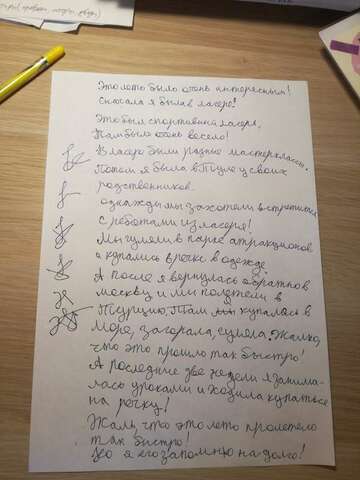 Это лето было очень интересным!
Сначала я была в лагере!
Это был спортивный лагерь,
Там было очень весело!
В лагере были разные мастерклассы.
Потом я была в у своих
родственников.
однажды мы захотели встретится
с ребятами из лагеря!
Мы гуляли в парке атракционов
и купались в речке в одежде.
А после я вернулась обратно в
москву и мы полетели в
Турцию. Там купалась в
море, загорала, гуляла. Жалко,
что это прошло так быстро!
А последние две недели я занима-
лась уроками и ходила купаться
на речку!
Жаль, что это лето пролетело
так быстро!
Но я его запомню на долго!